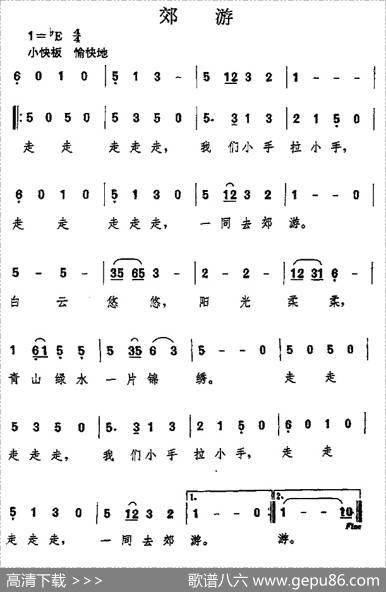 郊 游
1=♭E 4/4
小快板 愉快地
6 0 1 0 | 5 1 3 - | 5 12 3 2 | 1 - - 0 |
‖: 5 0 5 0 | 5 3 5 0 | 5. 3 1 3 | 2 1 5 0 |
走 走 走走走, 我 们小手 拉小手,
6 0 1 0 | 5 1 3 0 | 5 12 3 2 | 1 - - 0 |
走 走 走走走, 一同去郊 游。
5 - 5 - | 35 65 3 - | 2 - 2 - | 12 31 6 - |
白 云 悠 悠, 阳 光 柔 柔,
1 61 5 5 | 5 35 6 3 | 5 - - 0 | 5 0 5 0 |
青山绿水 一片锦 绣。 走 走
5 3 5 0 | 5. 3 1 3 | 2 1 5 0 | 6 0 1 0 |
走走走, 我 们小手 拉小手, 走 走
5 1 3 0 | 5 12 3 2 | 1. 1 - - 0 :‖ 2. 1 - - 10 ‖
Fine
走走走, 一同去郊 游。 游。
高清下载 >>> 歌谱八六 www.gepu86.com